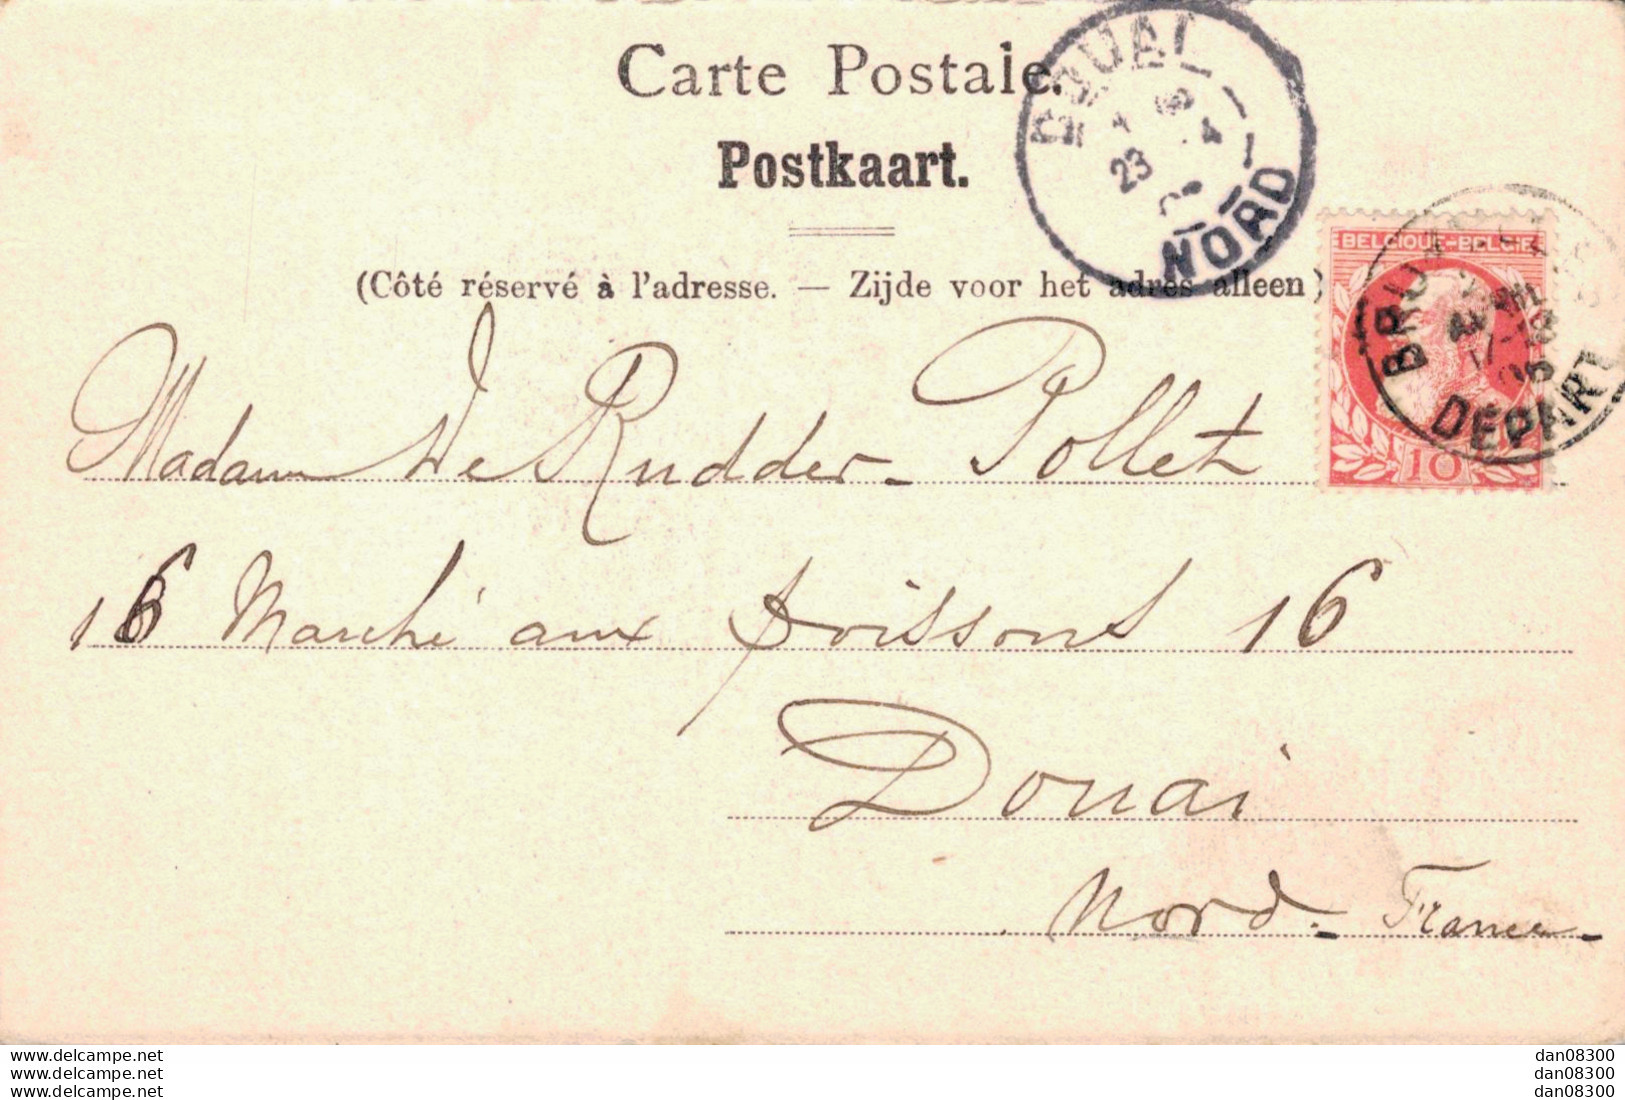 Carte Postale.
Postkaart.
(Côté réservé à l'adresse. — Zijde voor het adres alleen)
DOUAI
23
NORD
BELGIQUE-BELGIË
10
DEPART
Madame De Rudder-Pollet
16 Marché aux poissons 16
Douai
Nord - France-
www.delcampe.net
www.delcampe.net
www.delcampe.net
dan08300
dan08300
dan08300